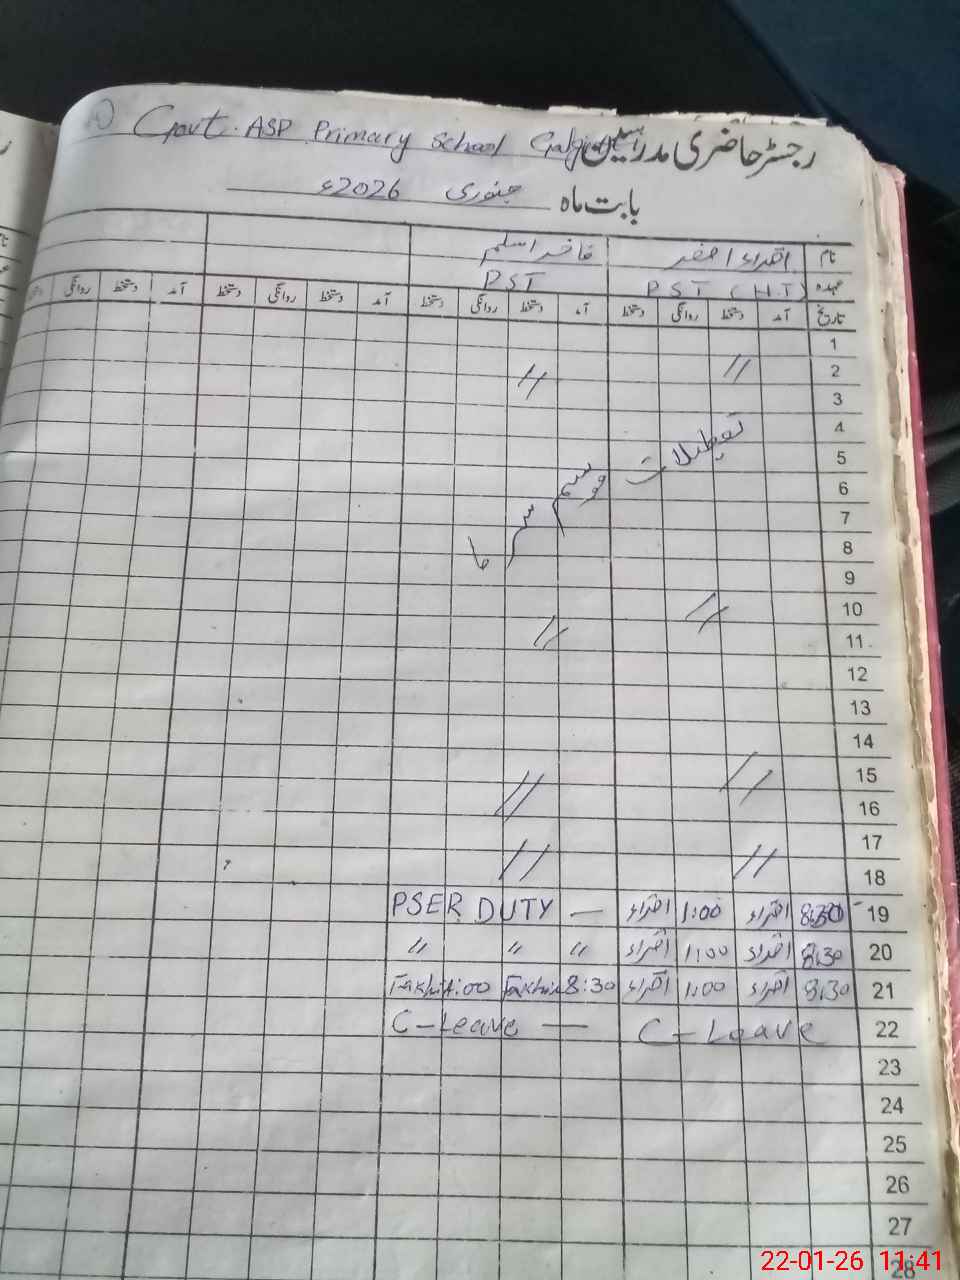 Govt. ASP Primary School
رجسٹر حاضری مدرسین
بابت ماہ جنوری 2026ء
نام اقراء اصغر فاخر اسلم
عہدہ PST (H.T) PST
تاریخ آمد دستخط روانگی دستخط آمد دستخط روانگی دستخط آمد دستخط روانگی دستخط آمد دستخط روانگی
1
2 // //
3
4
5
6
7
8
تعطیلات موسم سرما
9
10 //
11 //
12
13
14
15 // //
16
17
18 // //
19 8:30 اقراء 1:00 اقراء PSER DUTY —
20 8:30 اقراء 1:00 اقراء // // //
21 8:30 اقراء 1:00 اقراء 8:30 Fakhir 1:00 Fakhir
22 C-Leave C-Leave —
23
24
25
26
27
28
22-01-26 11:41